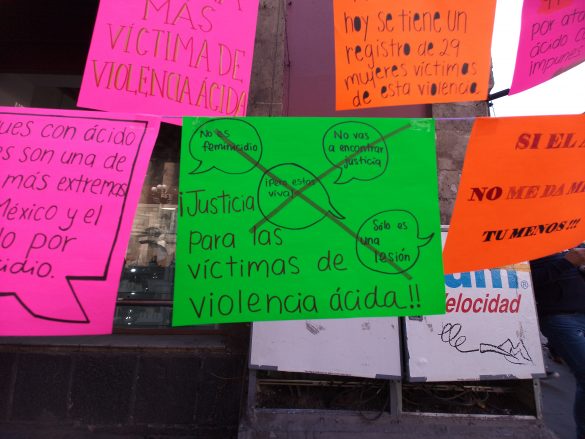 MÁS
VÍCTIMA DE
VIOLENCIA ÁCIDA
hoy se tiene un
registro de 29
mujeres víctimas
de esta violencia.
por
ácido
Impune
ques con ácido
es son una de
más extremas
México y el
lo por
cidio.
No es
feminicidio
No vas
a encontrar
justicia
¡Pero estas
viva!
Solo es
una
lesión
¡Justicia
para las
víctimas de
violencia ácida!!
SI EL
NO ME DA MA
TU MENOS!!!
um
Velocidad